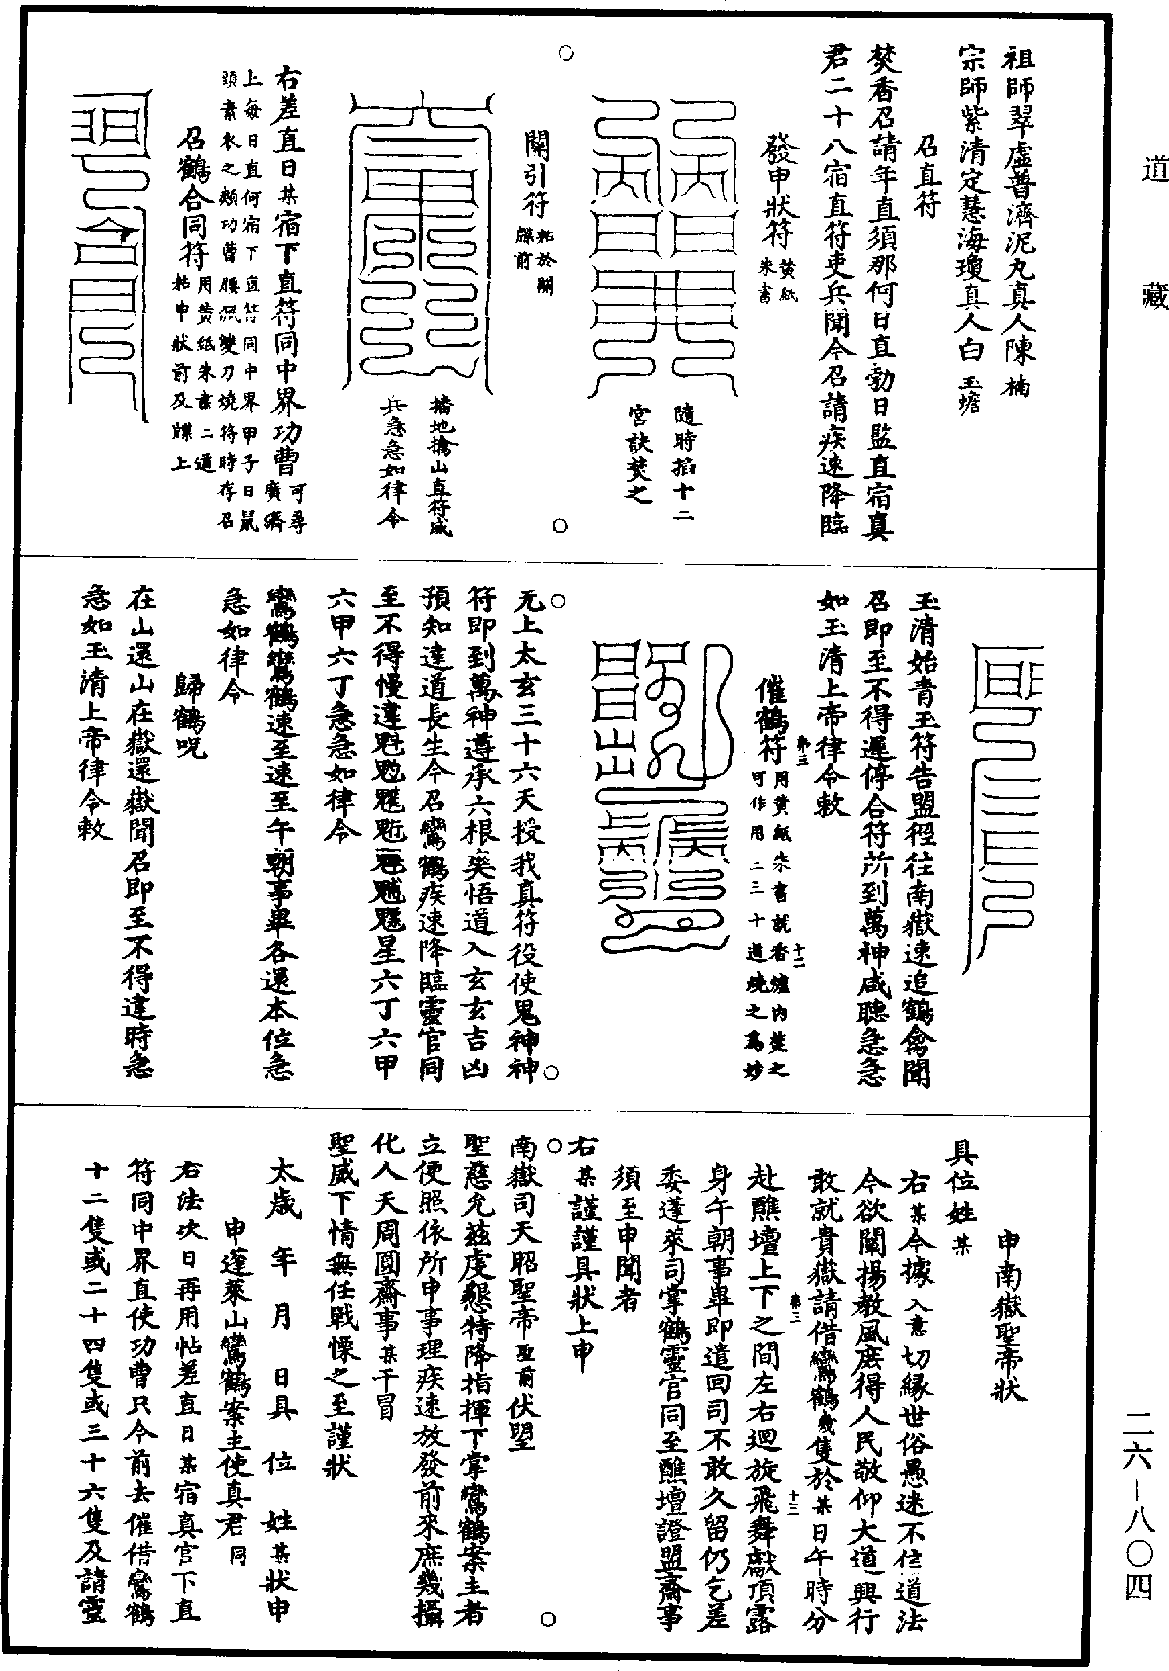 道藏
祖師翠虛普濟泥丸真人陳楠
宗師紫清定慧海瓊真人白玉蟾
召直符
焚香召請年直須那何日直勃日監直宿真
君二十八宿直符吏兵聞今召請疾速降臨
發申狀符黃紙朱書
隨時掐十二
宮訣焚之
關引符粘於關牒前
播地擒山直符威
兵急急如律令
右差直日某宿下直符同中界功曹可尋廣濟
上每日直何宿下直符同中界甲子日鼠
頭素衣之類功曹腰佩雙刀燒符時存召
召鶴合同符用黃紙朱書二道粘申狀前及牒上
玉清始青玉符告盟徑往南嶽速追鶴禽聞
召即至不得遲停合符所到萬神咸聽急急
如玉清上帝律令敕
第三
十二
催鶴符用黃紙朱書就香爐內焚之可作用二三十道燒之為妙
无上太玄三十六天授我真符役使鬼神神
符即到萬神遵承六根奭悟道入玄玄吉凶
預知達道長生今召鸞鶴疾速降臨靈官同
至不得慢違魁星六丁六甲
六甲六丁急急如律令
鸞鶴鸞鶴速至速至午朝事畢各還本位急
急如律令
歸鶴呪
在山還山在嶽還嶽聞召即至不得違時急
急如玉清上帝律令敕
申南嶽聖帝狀
具位姓某
右某今據入意切緣世俗愚迷不信道法
今欲闡揚教風庶得人民敬仰大道興行
敢就貴嶽請借鸞鶴幾隻於某日午時分
第三
十三
赴醮壇上下之間左右迴旋飛舞獻頂露
身午朝事畢即遣回司不敢久留仍乞差
委蓬萊司掌鶴靈官同至醮壇證盟齋事
須至申聞者
右某謹謹具狀上申
南嶽司天昭聖帝聖前伏望
聖慈允茲虔懇特降指揮下掌鸞鶴案主者
立便照依所申事理疾速放發前來庶幾攝
化人天周圓齋事某干冒
聖威下情無任戰慄之至謹狀
太歲年月日具位姓某狀申
申蓬萊山鸞鶴案主使真君同
右法次日再用帖差直日某宿真官下直
符同中界直使功曹只今前去催借鸞鶴
十二隻或二十四隻或三十六隻及請靈
二六－八〇四